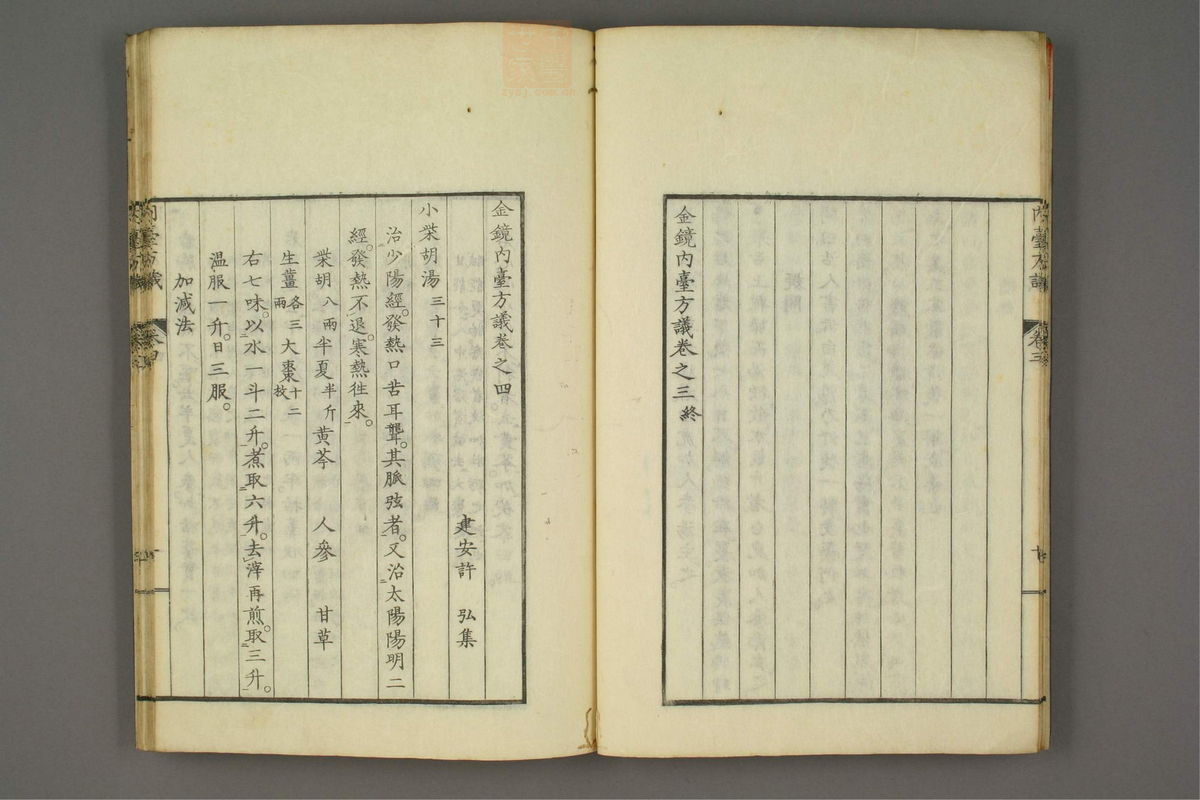 金鏡內臺方議卷之三終
金鏡內臺方議卷之四
建安許　弘集
小柴胡湯 三十三
治少陽經。發熱口苦耳聾。其脈弦者。又治太陽陽明二
經。發熱不退。寒熱徃來。
柴胡八兩 半夏半斤 黃芩　人參　甘草
生薑各三兩 大棗十二枚
右七味。以水一斗二升。煮取六升。去滓再煎。取三升。
温服一升。日三服。
加減法